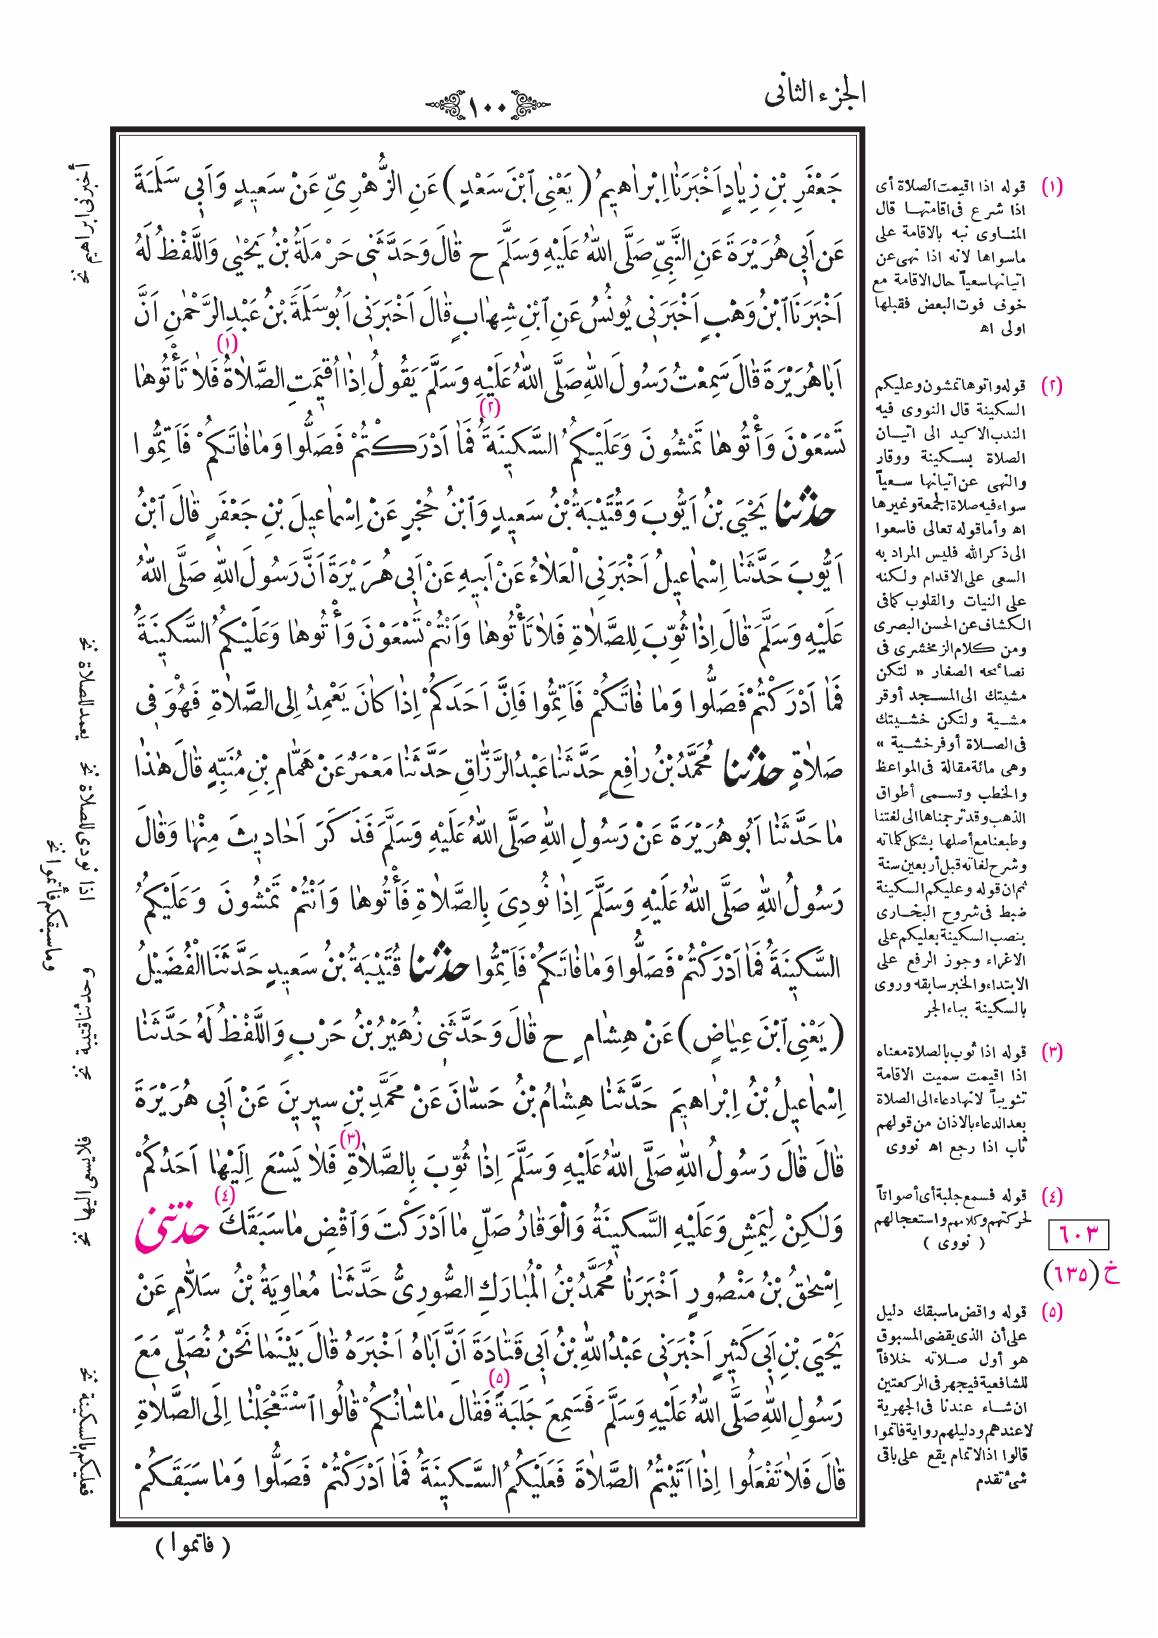 الجزء الثانى
١٠٠
جَعْفَرِ بْنِ زِيَادٍ اَخْبَرَنَا اِبْرَاهِيمُ ( يَعْنِى ابْنَ سَعْدٍ ) عَنِ الزُّهْرِىِّ عَنْ سَعِيدٍ وَاَبِى سَلَمَةَ
عَنْ اَبِى هُرَيْرَةَ عَنِ النَّبِىِّ صَلَّى اللهُ عَلَيْهِ وَسَلَّمَ ح قَالَ وَحَدَّثَنِى حَرْمَلَةُ بْنُ يَحْيٰى وَاللَّفْظُ لَهُ
اَخْبَرَنَا ابْنُ وَهْبٍ اَخْبَرَنِى يُونُسُ عَنِ ابْنِ شِهَابٍ قَالَ اَخْبَرَنِى اَبُوسَلَمَةَ بْنُ عَبْدِ الرَّحْمٰنِ اَنَّ
اَبَا هُرَيْرَةَ قَالَ سَمِعْتُ رَسُولَ اللهِ صَلَّى اللهُ عَلَيْهِ وَسَلَّمَ يَقُولُ اِذَا اُقِيمَتِ الصَّلَاةُ (١) فَلَا تَأْتُوهَا
تَسْعَوْنَ وَأْتُوهَا تَمْشُونَ وَعَلَيْكُمُ السَّكِينَةَُ (٢) فَمَا اَدْرَكْتُمْ فَصَلُّوا وَمَا فَاتَكُمْ فَاَتِمُّوا
حَدَّثَنَا يَحْيَى بْنُ اَيُّوبَ وَقُتَيْبَةُ بْنُ سَعِيدٍ وَابْنُ حُجْرٍ عَنْ اِسْمَاعِيلَ بْنِ جَعْفَرٍ قَالَ ابْنُ
اَيُّوبَ حَدَّثَنَا اِسْمَاعِيلُ اَخْبَرَنِى الْعَلَاءُ عَنْ اَبِيهِ عَنْ اَبِى هُرَيْرَةَ اَنَّ رَسُولَ اللهِ صَلَّى اللهُ
عَلَيْهِ وَسَلَّمَ قَالَ اِذَا ثُوِّبَ لِلصَّلَاةِ فَلَا تَأْتُوهَا وَاَنْتُمْ تَسْعَوْنَ وَأْتُوهَا وَعَلَيْكُمُ السَّكِينَةَُ
فَمَا اَدْرَكْتُمْ فَصَلُّوا وَمَا فَاتَكُمْ فَاَتِمُّوا فَاِنَّ اَحَدَكُمْ اِذَا كَانَ يَعْمِدُ اِلَى الصَّلَاةِ فَهْوَ فِى
صَلَاةٍ حَدَّثَنَا مُحَمَّدُ بْنُ رَافِعٍ حَدَّثَنَا عَبْدُ الرَّزَّاقِ حَدَّثَنَا مَعْمَرٌ عَنْ هَمَّامِ بْنِ مُنَبِّهٍ قَالَ هٰذَا
مَا حَدَّثَنَا اَبُو هُرَيْرَةَ عَنْ رَسُولِ اللهِ صَلَّى اللهُ عَلَيْهِ وَسَلَّمَ فَذَكَرَ اَحَادِيثَ مِنْهَا وَقَالَ
رَسُولُ اللهِ صَلَّى اللهُ عَلَيْهِ وَسَلَّمَ اِذَا نُودِىَ بِالصَّلَاةِ فَأْتُوهَا وَاَنْتُمْ تَمْشُونَ وَعَلَيْكُمُ
السَّكِينَةَُ فَمَا اَدْرَكْتُمْ فَصَلُّوا وَمَا فَاتَكُمْ فَاَتِمُّوا حَدَّثَنَا قُتَيْبَةُ بْنُ سَعِيدٍ حَدَّثَنَا الْفُضَيْلُ
( يَعْنِى ابْنَ عِيَاضٍ ) عَنْ هِشَامٍ ح قَالَ وَحَدَّثَنِى زُهَيْرُ بْنُ حَرْبٍ وَاللَّفْظُ لَهُ حَدَّثَنَا
اِسْمَاعِيلُ بْنُ اِبْرَاهِيمَ حَدَّثَنَا هِشَامُ بْنُ حَسَّانَ عَنْ مُحَمَّدِ بْنِ سِيرِينَ عَنْ اَبِى هُرَيْرَةَ
قَالَ قَالَ رَسُولُ اللهِ صَلَّى اللهُ عَلَيْهِ وَسَلَّمَ اِذَا ثُوِّبَ بِالصَّلَاةِ (٣) فَلَا يَسْعَ اِلَيْهَا اَحَدُكُمْ
وَلٰكِنْ لِيَمْشِ وَعَلَيْهِ السَّكِينَةُ وَالْوَقَارُ صَلِّ مَا اَدْرَكْتَ وَاقْضِ مَا سَبَقَكَ (٤) حَدَّثَنِى
اِسْحٰقُ بْنُ مَنْصُورٍ اَخْبَرَنَا مُحَمَّدُ بْنُ الْمُبَارَكِ الصُّورِىُّ حَدَّثَنَا مُعَاوِيَةُ بْنُ سَلَّامٍ عَنْ
يَحْيَى بْنِ اَبِى كَثِيرٍ اَخْبَرَنِى عَبْدُ اللهِ بْنُ اَبِى قَتَادَةَ اَنَّ اَبَاهُ اَخْبَرَهُ قَالَ بَيْنَمَا نَحْنُ نُصَلِّى مَعَ
رَسُولِ اللهِ صَلَّى اللهُ عَلَيْهِ وَسَلَّمَ فَسَمِعَ جَلَبَةً (٥) فَقَالَ مَا شَانُكُمْ قَالُوا اسْتَعْجَلْنَا اِلَى الصَّلَاةِ
قَالَ فَلَا تَفْعَلُوا اِذَا اَتَيْتُمُ الصَّلَاةَ فَعَلَيْكُمُ السَّكِينَةَُ فَمَا اَدْرَكْتُمْ فَصَلُّوا وَمَا سَبَقَكُمْ
( فاتموا )
(١) قوله اذا اقيمت الصلاة أى
اذا شرع فى اقامتها قال
المناوى نبه بالاقامة على
ماسواها لانه اذا نهى عن
اتيانها سعياً حال الاقامة مع
خوف فوت البعض فقبلها
اولى اه
(٢) قوله واتوها تمشون وعليكم
السكينة قال النووى فيه
الندب الاكيد الى اتيان
الصلاة بسكينة ووقار
والنهى عن اتيانها سعياً
سواء فيه صلاة الجمعة وغيرها
اه وأما قوله تعالى فاسعوا
الى ذكر الله فليس المراد به
السعى على الاقدام ولكنه
على النيات والقلوب كما فى
الكشاف عن الحسن البصرى
ومن كلام الزمخشرى فى
نصائحه الصغار « لتكن
مشيتك الى المسجد أوقر
مشية ولتكن خشيتك
فى الصلاة أوفر خشية »
وهى مائة مقالة فى المواعظ
والخطب وتسمى أطواق
الذهب وقد ترجمناها الى لغتنا
وطبعنا مع أصلها بشكل كلماته
وشرح لغاته قبل أربعين سنة
ثم ان قوله وعليكم السكينة
ضبط فى شروح البخارى
بنصب السكينة بعليكم على
الاغراء وجوز الرفع على
الابتداء والخبر سابقه وروى
بالسكينة بباء الجر
(٣) قوله اذا ثوب بالصلاة معناه
اذا اقيمت سميت الاقامة
تثويباً لانها دعاء الى الصلاة
بعد الدعاء بالاذان من قولهم
ثاب اذا رجع اه نووى
(٤) قوله فسمع جلبة أى أصواتاً
لحركتهم وكلامهم واستعجالهم
( نووى )
٦٠٣
خ (٦٣٥)
(٥) قوله واقض ماسبقك دليل
على أن الذى يقضى المسبوق
هو أول صلاته خلافاً
للشافعية فيجهر فى الركعتين
ان شاء عندنا فى الجهرية
لا عندهم ودليلهم رواية فاتموا
قالوا اذ الاتمام يقع على باقى
شئ تقدم
أخبرنى ابراهيم نخ
يعمد للصلاة نخ
اذا نودى للصلاة نخ
وما سبقكم فأتموا نخ
وحدثنا قتيبة نخ
فلا يسعى اليها نخ
فعليكم بالسكينة نخ